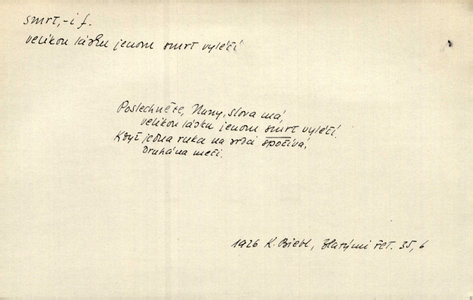 smrt, -i f.
velikou lásku jenom smrt vyléčí
Poslechněte, Nuny, slova má,
velikou lásku jenom smrt vyléčí
Když jedna ruka na srdci spočívá,
druhá na meči.
1926 K. Biebl, Zlatými řet. 35, 6